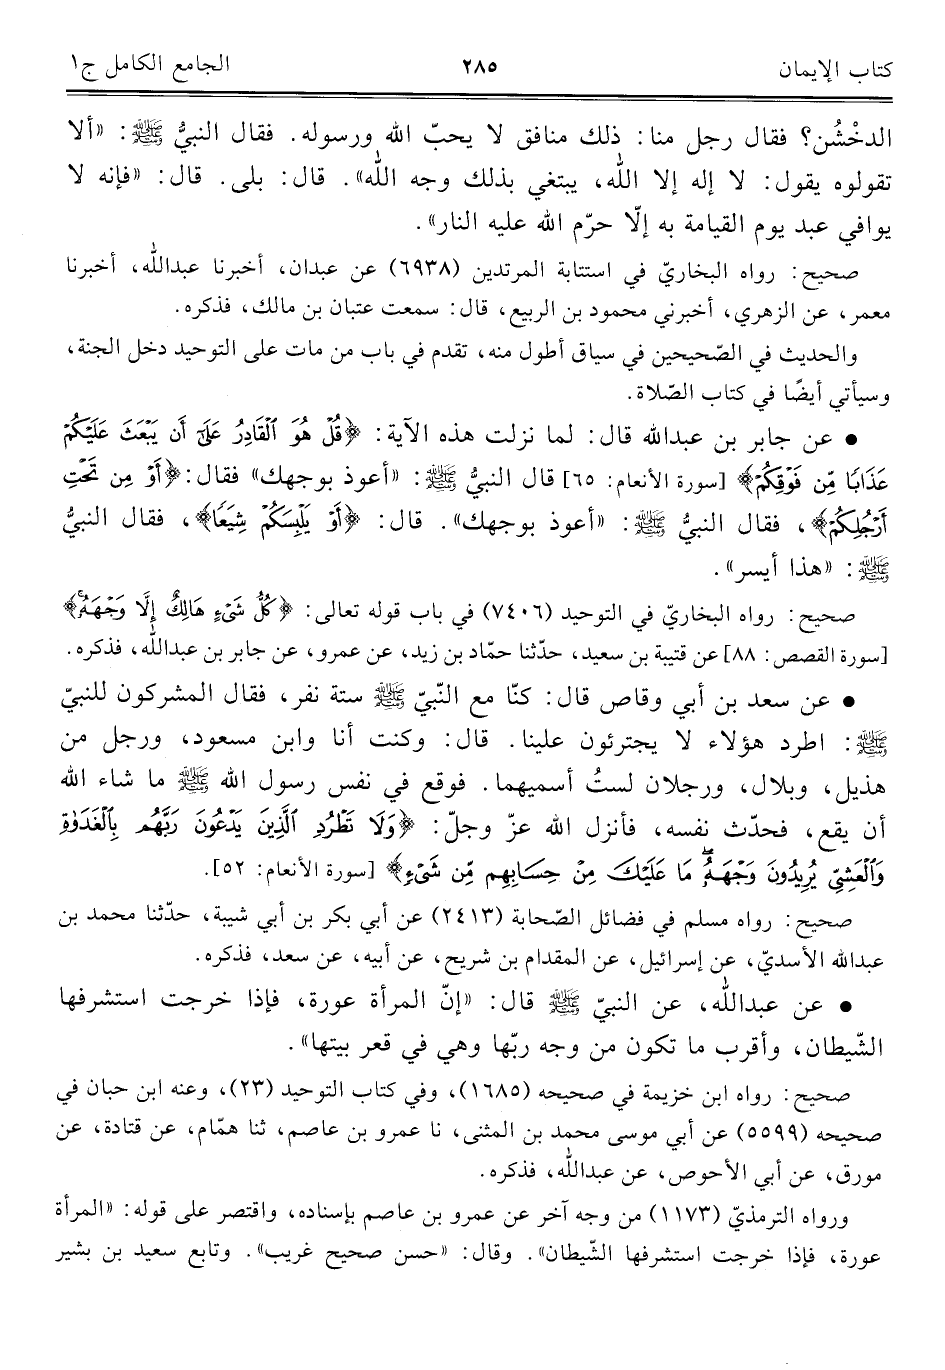 كتاب الإيمان ٢٨٥ الجامع الكامل ج١
الدخْشُن؟ فقال رجل منا: ذلك منافق لا يحبّ الله ورسوله. فقال النبيُّ ﷺ: «ألا
تقولوه يقول: لا إله إلا الله، يبتغي بذلك وجه الله». قال: بلى. قال: «فإنه لا
يوافي عبد يوم القيامة به إلّا حرّم الله عليه النار».
صحيح: رواه البخاريّ في استتابة المرتدين (٦٩٣٨) عن عبدان، أخبرنا عبدالله، أخبرنا
معمر، عن الزهري، أخبرني محمود بن الربيع، قال: سمعت عتبان بن مالك، فذكره.
والحديث في الصّحيحين في سياق أطول منه، تقدم في باب من مات على التوحيد دخل الجنة،
وسيأتي أيضًا في كتاب الصّلاة.
• عن جابر بن عبدالله قال: لما نزلت هذه الآية: ﴿قُلْ هُوَ ٱلْقَادِرُ عَلَىٰٓ أَن يَبْعَثَ عَلَيْكُمْ
عَذَابًا مِّن فَوْقِكُمْ﴾ [سورة الأنعام: ٦٥] قال النبيُّ ﷺ: «أعوذ بوجهك» فقال: ﴿أَوْ مِن تَحْتِ
أَرْجُلِكُمْ﴾، فقال النبيُّ ﷺ: «أعوذ بوجهك». قال: ﴿أَوْ يَلْبِسَكُمْ شِيَعًا﴾، فقال النبيُّ
ﷺ: «هذا أيسر».
صحيح: رواه البخاريّ في التوحيد (٧٤٠٦) في باب قوله تعالى: ﴿كُلُّ شَىْءٍ هَالِكٌ إِلَّا وَجْهَهُۥ﴾
[سورة القصص: ٨٨] عن قتيبة بن سعيد، حدّثنا حمّاد بن زيد، عن عمرو، عن جابر بن عبدالله، فذكره.
• عن سعد بن أبي وقاص قال: كنّا مع النّبيّ ﷺ ستة نفر، فقال المشركون للنبيّ
ﷺ: اطرد هؤلاء لا يجترئون علينا. قال: وكنت أنا وابن مسعود، ورجل من
هذيل، وبلال، ورجلان لستُ أسميهما. فوقع في نفس رسول الله ﷺ ما شاء الله
أن يقع، فحدّث نفسه، فأنزل الله عزّ وجلّ: ﴿وَلَا تَطْرُدِ ٱلَّذِينَ يَدْعُونَ رَبَّهُم بِٱلْغَدَوٰةِ
وَٱلْعَشِىِّ يُرِيدُونَ وَجْهَهُۥ ۖ مَا عَلَيْكَ مِنْ حِسَابِهِم مِّن شَىْءٍ﴾ [سورة الأنعام: ٥٢].
صحيح: رواه مسلم في فضائل الصّحابة (٢٤١٣) عن أبي بكر بن أبي شيبة، حدّثنا محمد بن
عبدالله الأسديّ، عن إسرائيل، عن المقدام بن شريح، عن أبيه، عن سعد، فذكره.
• عن عبدالله، عن النبيّ ﷺ قال: «إنّ المرأة عورة، فإذا خرجت استشرفها
الشّيطان، وأقرب ما تكون من وجه ربّها وهي في قعر بيتها».
صحيح: رواه ابن خزيمة في صحيحه (١٦٨٥)، وفي كتاب التوحيد (٢٣)، وعنه ابن حبان في
صحيحه (٥٥٩٩) عن أبي موسى محمد بن المثنى، نا عمرو بن عاصم، ثنا همّام، عن قتادة، عن
مورق، عن أبي الأحوص، عن عبدالله، فذكره.
ورواه الترمذيّ (١١٧٣) من وجه آخر عن عمرو بن عاصم بإسناده، واقتصر على قوله: «المرأة
عورة، فإذا خرجت استشرفها الشّيطان». وقال: «حسن صحيح غريب». وتابع سعيد بن بشير